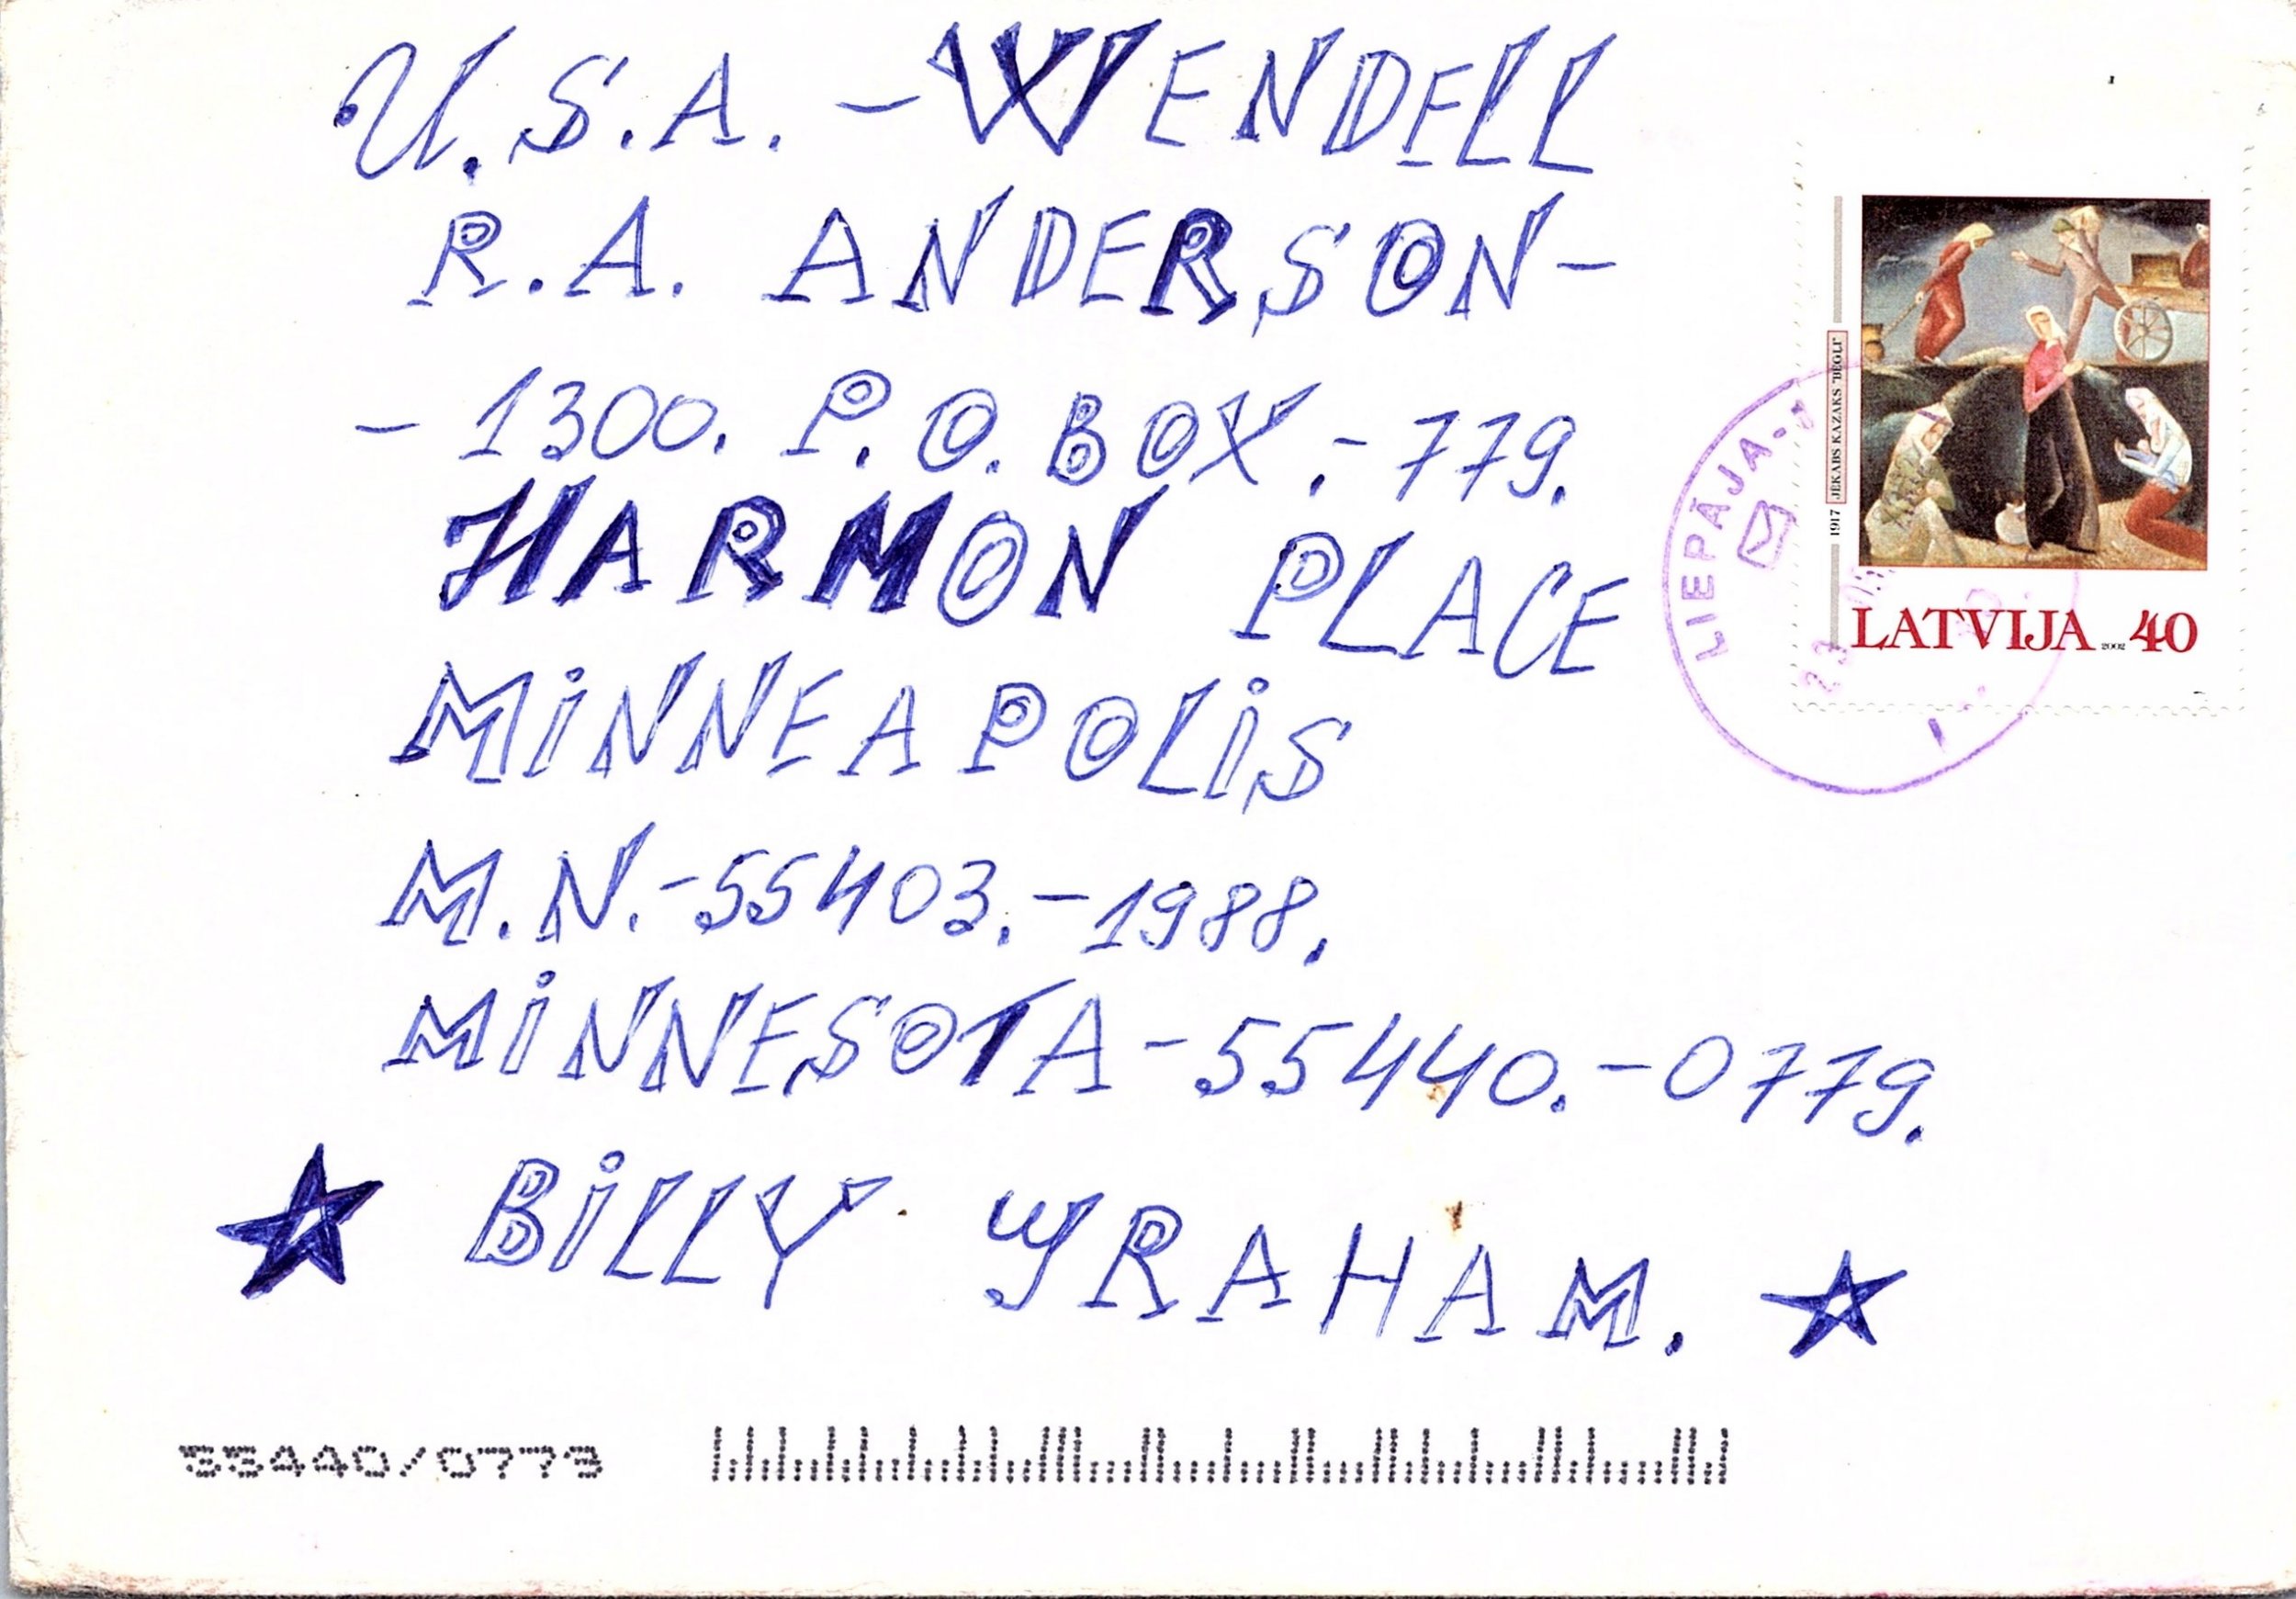 U.S.A. - WENDELL
R.A. ANDERSON-
- 1300. P.O. BOX.- 779.
HARMON PLACE
MiNNEAPOLiS
M.N.-55403.-1988.
MiNNESOTA-55440.-0779.
★ BiLLY GRAHAM. ★
55440/0779
1917 JĒKABS KAZAKS "BĒGĻI"
LATVIJA 2002 40
LIEPĀJA-